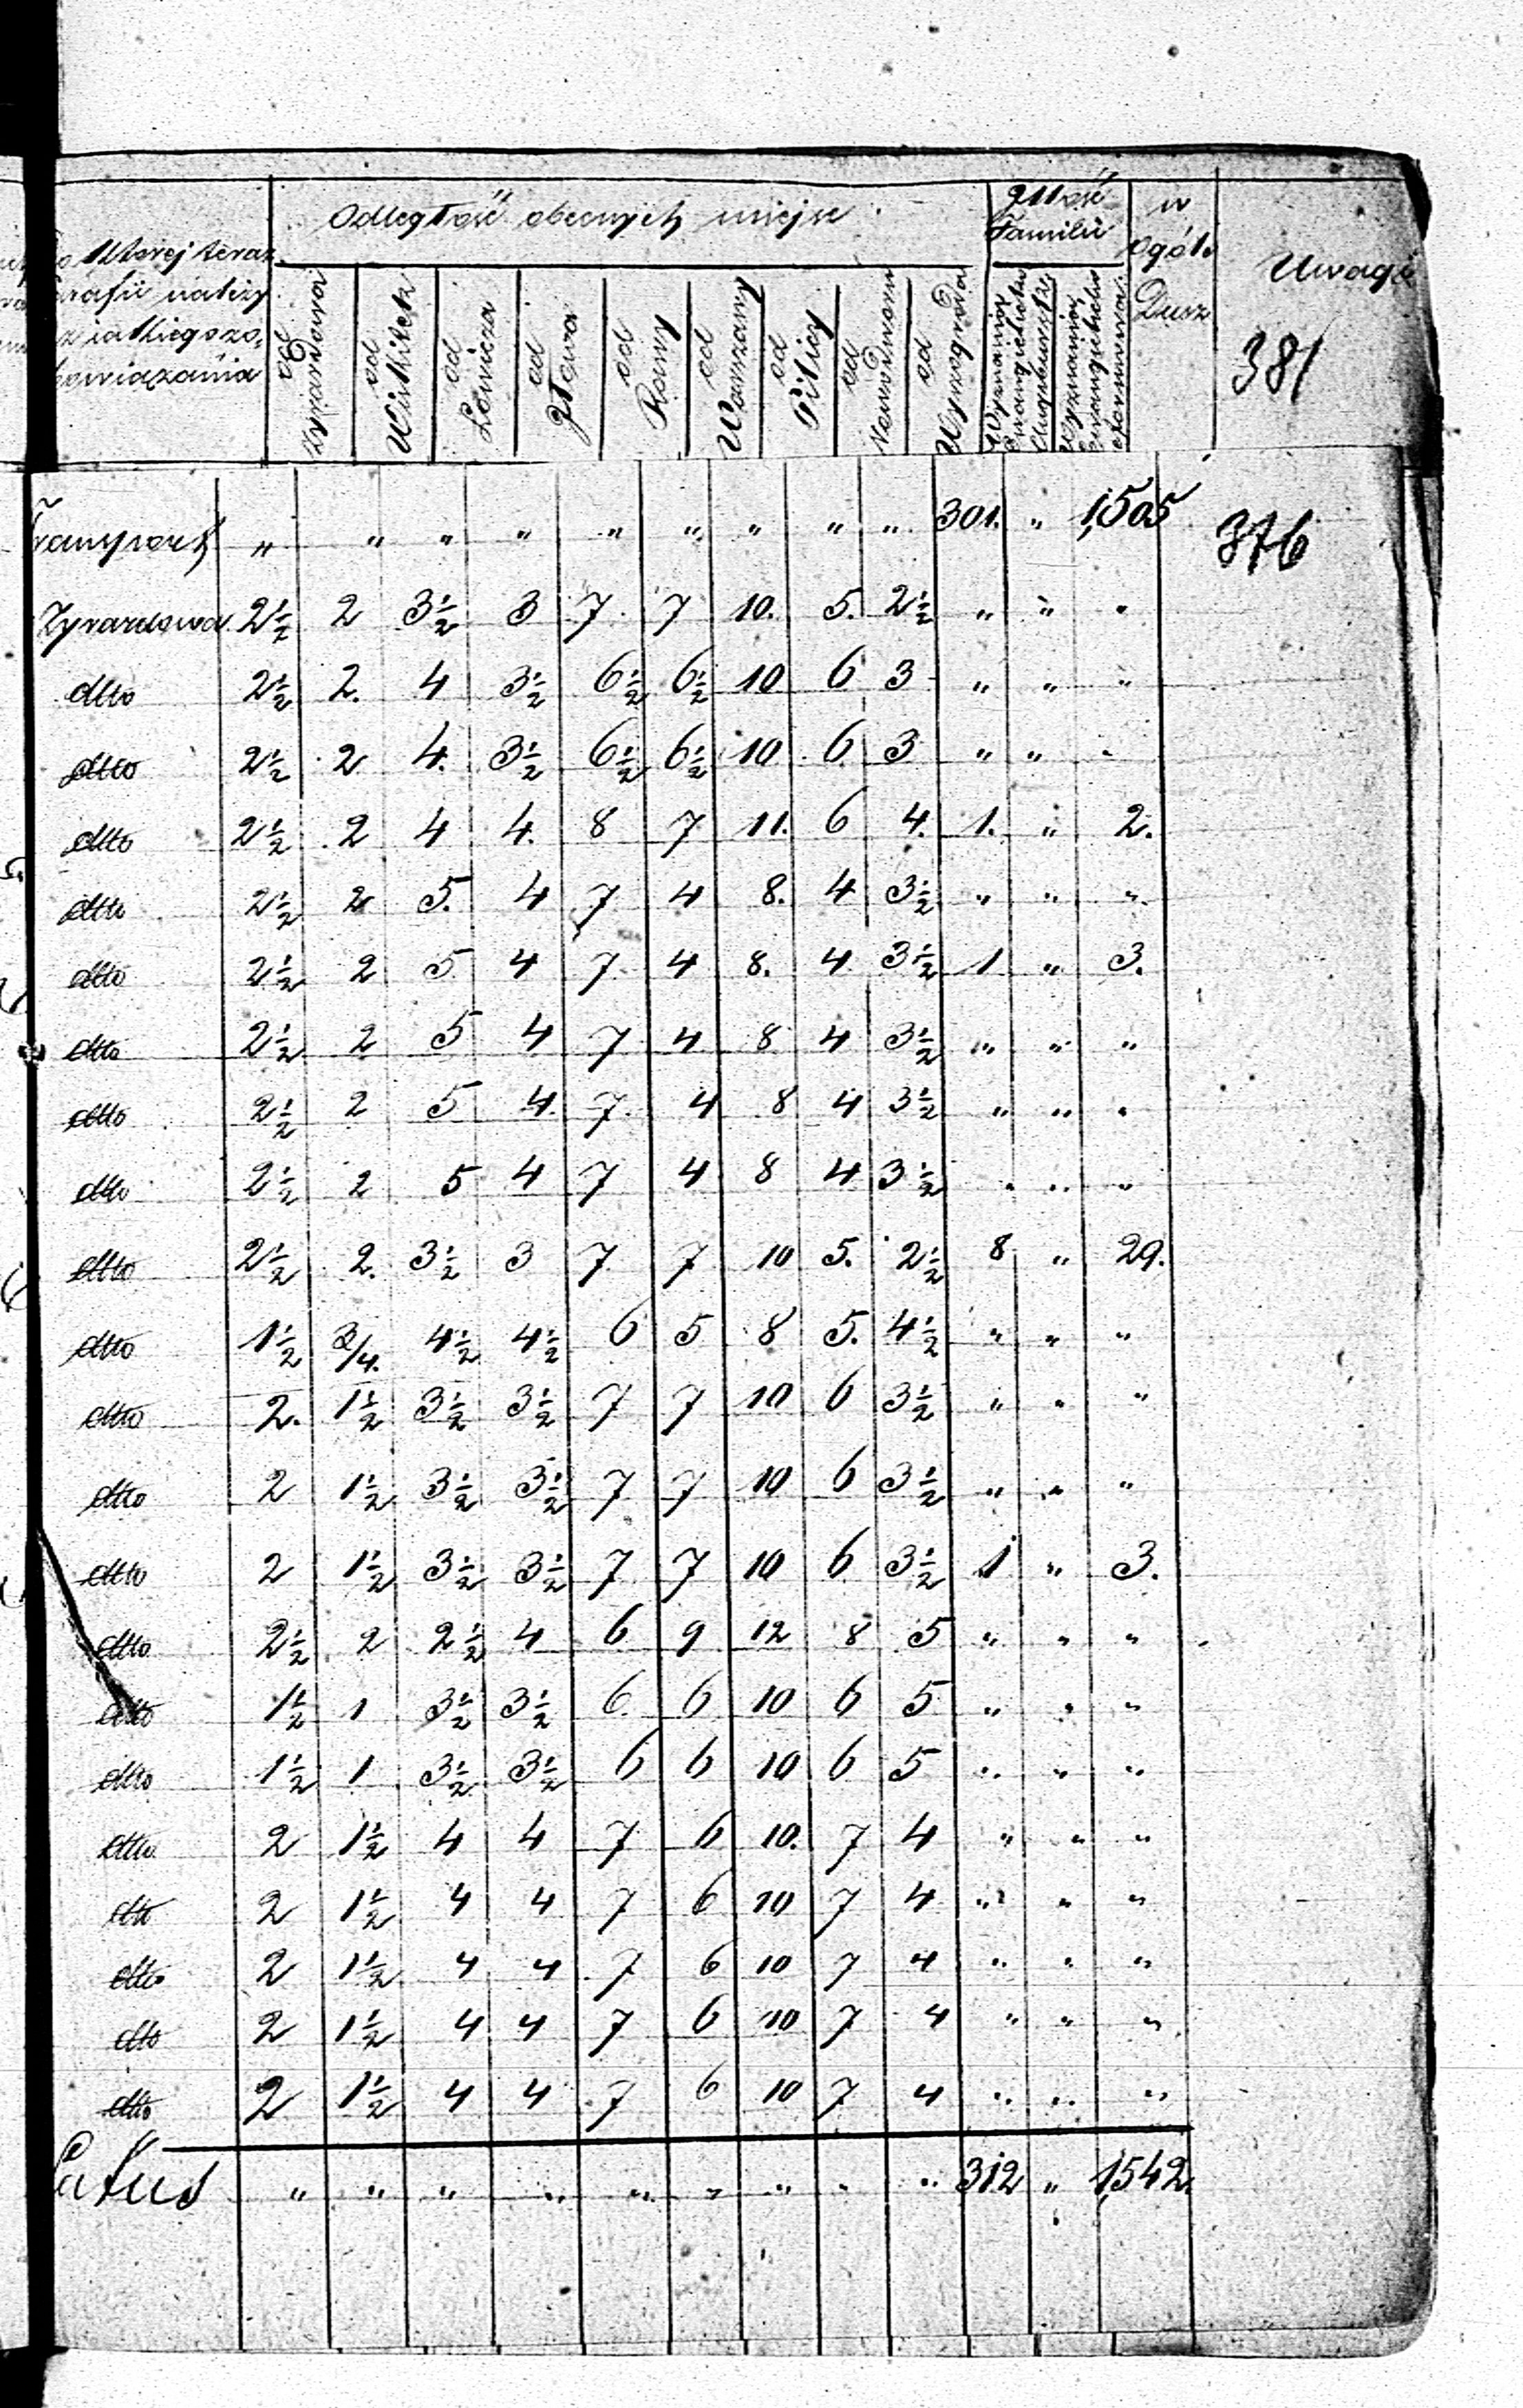 Odległość obecnych miejsc
Ilość Familii
w Ogóle Dusz
Uwagi
do której teraz
parafii należy
z jakiego zo-
bowiązania
od Żyrardowa
od Wiskitek
od Łowicza
od Iłowa
od Rawy
od Warszawy
od Pilicy
od Nowodworu
od Wyszogroda
Wyznania Ewangielicko Augsburskie
Wyznania Ewangielicko Reformowa.
381
376
Transport " " " " " " " " " 301. " 1,505
Zyrardowa 2½ 2 3½ 3 7 7 10. 5. 2½ " " "
dtto 2½ 2. 4 3½ 6½ 6½ 10 6 3 " " "
dtto 2½ 2 4. 3½ 6½ 6½ 10 6 3 " " "
dtto 2½ 2 4 4. 8 7 11. 6 4. 1. " 2.
dtto 2½ 2 5. 4 7 4 8. 4 3½ " " "
dtto 2½ 2 5 4 7. 4 8. 4 3½ 1 " 3.
dtto 2½ 2 5 4 7 4 8 4 3½ " " "
dtto 2½ 2 5 4. 7. 4 8 4 3½ " " "
dtto 2½ 2 5 4 7 4 8 4 3½ " " "
dtto 2½ 2. 3½ 3 7 7 10 5. 2½ 8 " 29.
dtto 1½ 3/4. 4½ 4½ 6 5 8 5. 4½ " " "
dtto 2. 1½ 3½ 3½ 7 7 10 6 3½ " " "
dtto 2 1½ 3½ 3½ 7 7 10 6 3½ " " "
dtto 2 1½ 3½ 3½ 7 7 10 6 3½ 1 " 3.
dtto 2½ 2 2½ 4 6 9 12 8 5 " " "
dtto 1½ 1 3½ 3½ 6. 6 10 6 5 " " "
dtto 1½ 1 3½ 3½ 6 6 10 6 5 " " "
dtto 2 1½ 4 4 7 6 10. 7 4 " " "
dtto 2 1½ 4 4 7 6 10 7 4 " " "
dtto 2 1½ 4 4 7 6 10 7 4 " " "
dtto 2 1½ 4 4 7 6 10 7 4 " " "
dtto 2 1½ 4 4 7 6 10 7 4 " " "
Latus " " " " " " " " " 312 " 1,542.